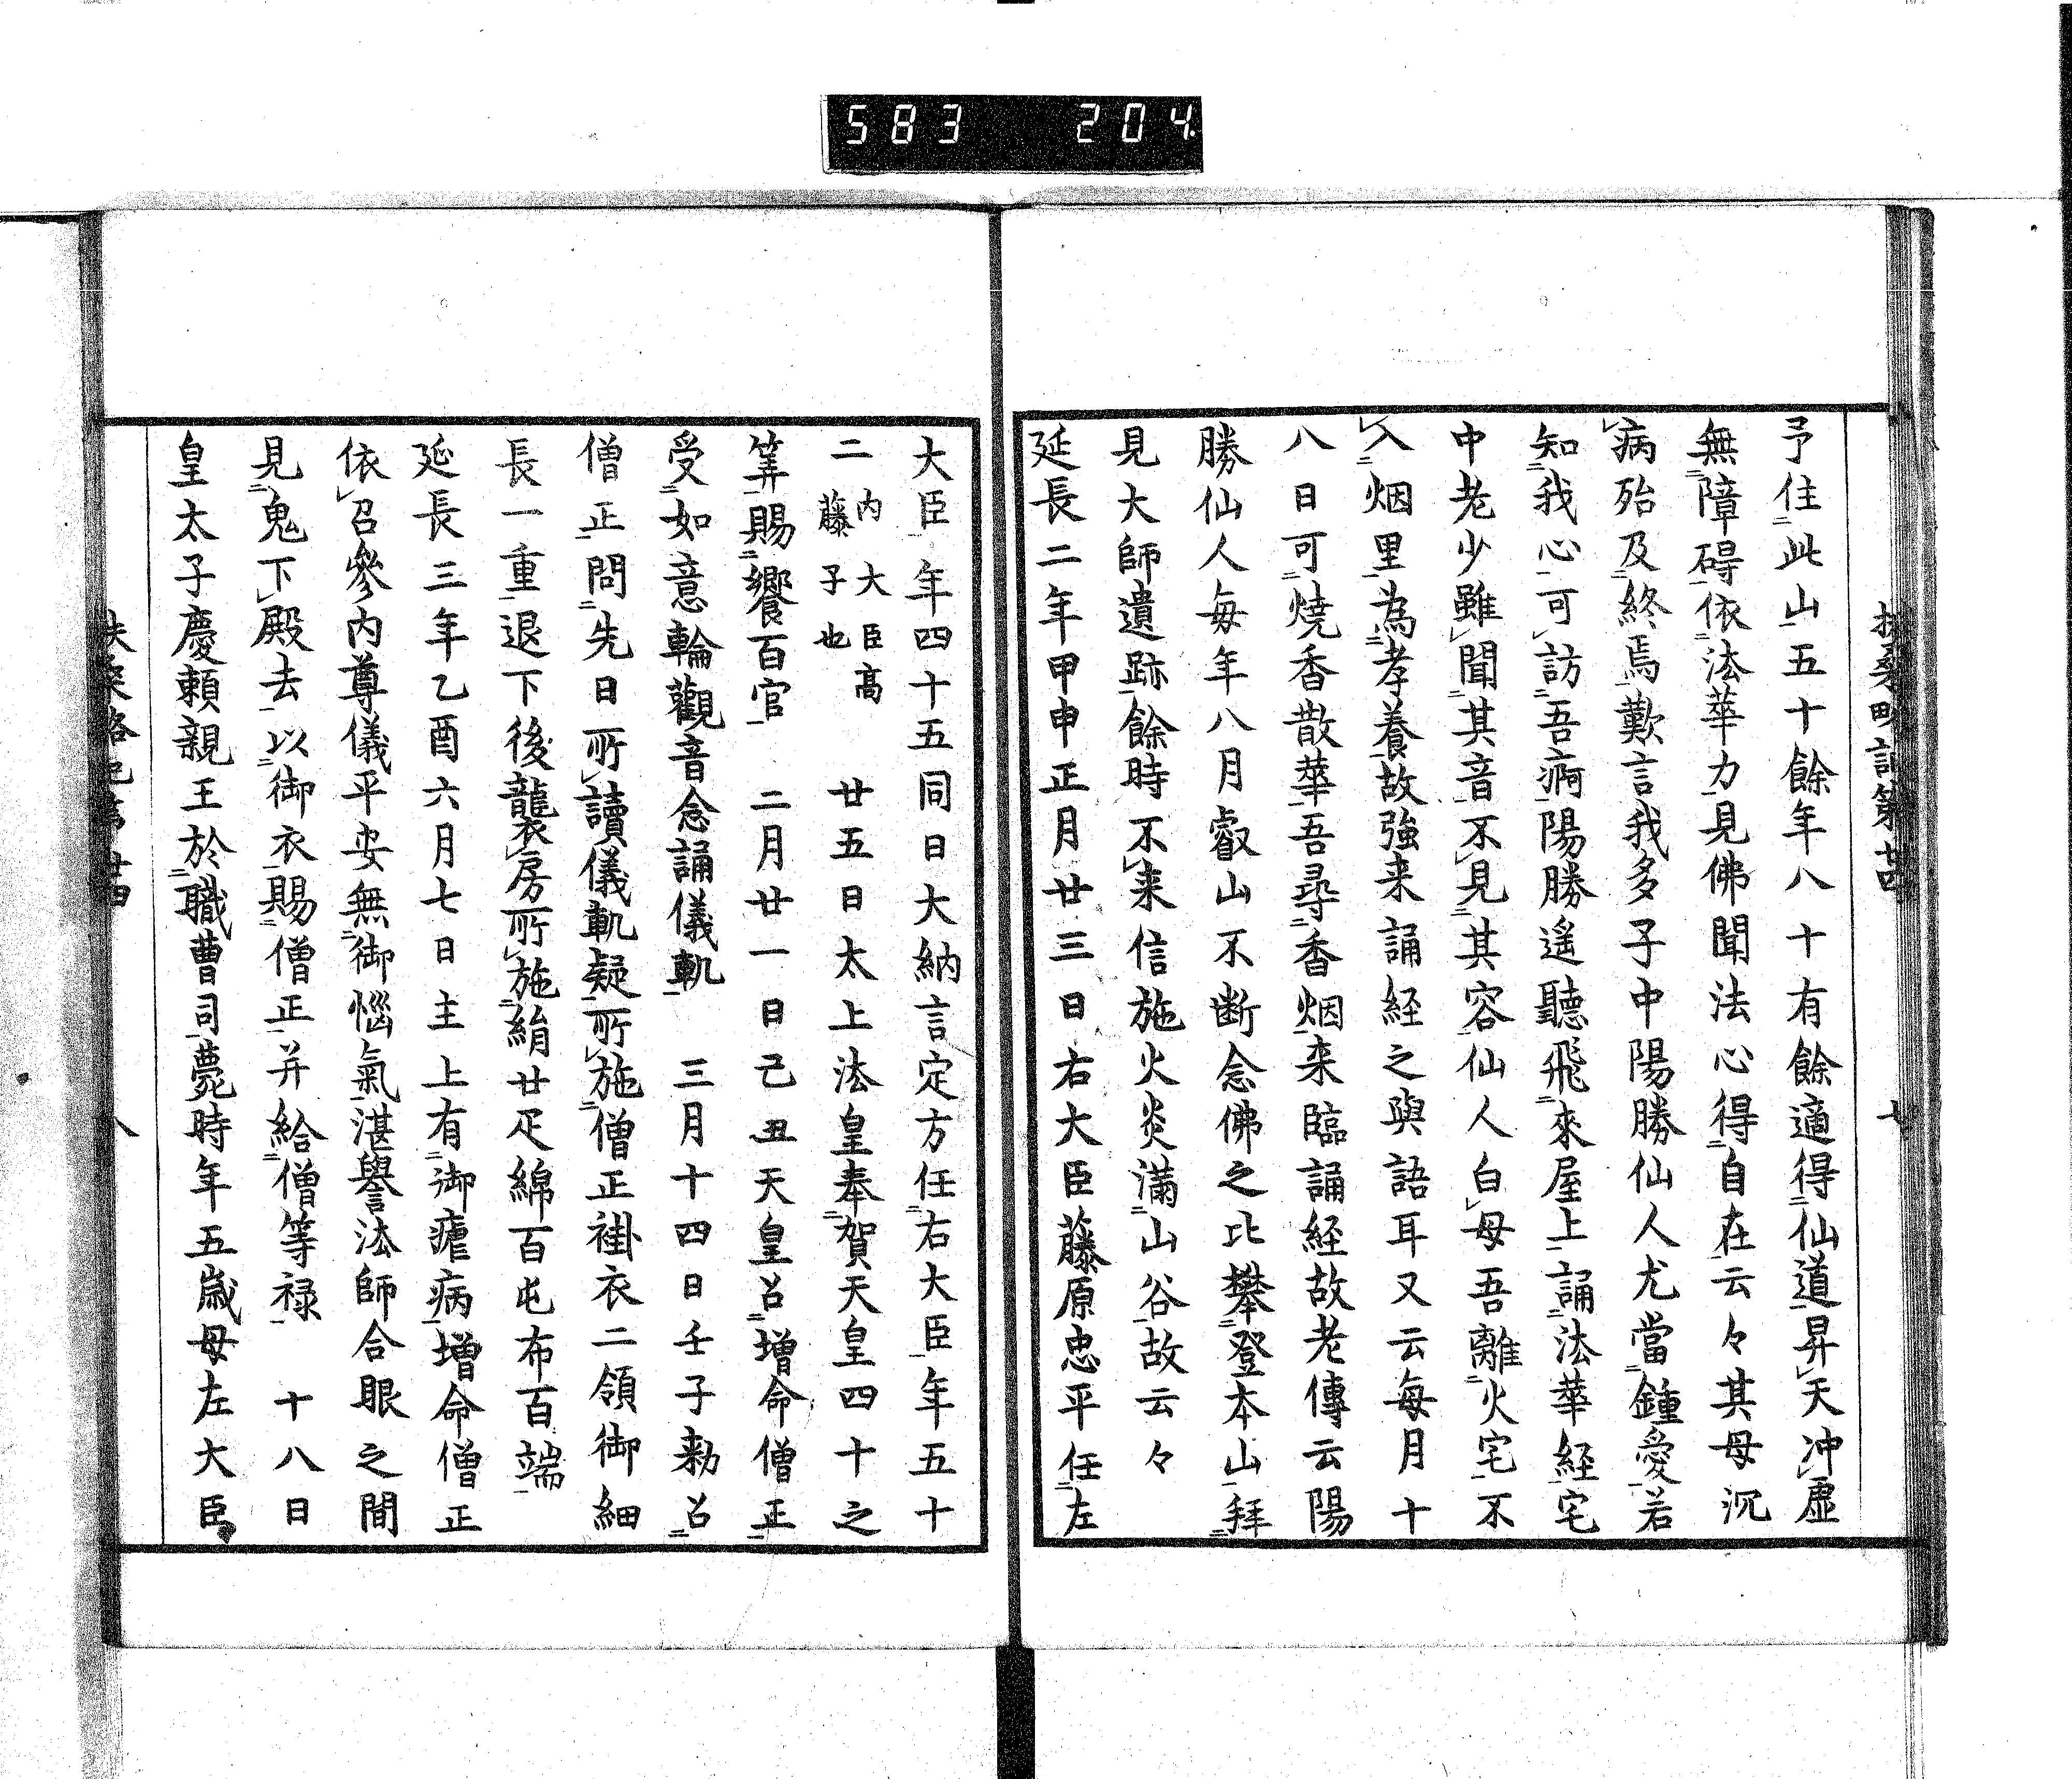 583 204
扶桑略記第廿四 七
予住此山五十餘年八十有餘適得仙道昇天冲虛
無障碍依法華力見佛聞法心得自在云々其母沉
病殆及終焉歎言我多子中陽勝仙人尤當鍾愛若
知我心可訪吾痾陽勝遥聽飛來屋上誦法華經宅
中老少雖聞其音不見其容仙人白母吾離火宅不
入烟里為孝養故強来誦経之與語耳又云每月十
八日可燒香散華吾尋香烟来臨誦経故老傳云陽
勝仙人每年八月叡山不断念佛之比攀登本山拜
見大師遺跡餘時不来信施火炎滿山谷故云々
延長二年甲申正月廿三日右大臣藤原忠平任左
大臣年四十五同日大納言定方任右大臣年五十
二内大臣高藤子也 廿五日太上法皇奉賀天皇四十之
筭賜饗百官 二月廿一日己丑天皇召增命僧正
受如意輪觀音念誦儀軌 三月十四日壬子勅召
僧正問先日所讀儀軌疑所施僧正褂衣二領御細
長一重退下後襲房所施絹廿疋綿百屯布百端
延長三年乙酉六月七日主上有御瘧病增命僧正
依召參内尊儀平安無御惱氣湛譽法師合眼之間
見鬼下殿去以御衣賜僧正并給僧等禄 十八日
皇太子慶頼親王於職曹司薨時年五歳母左大臣
扶桑略記第廿四 八